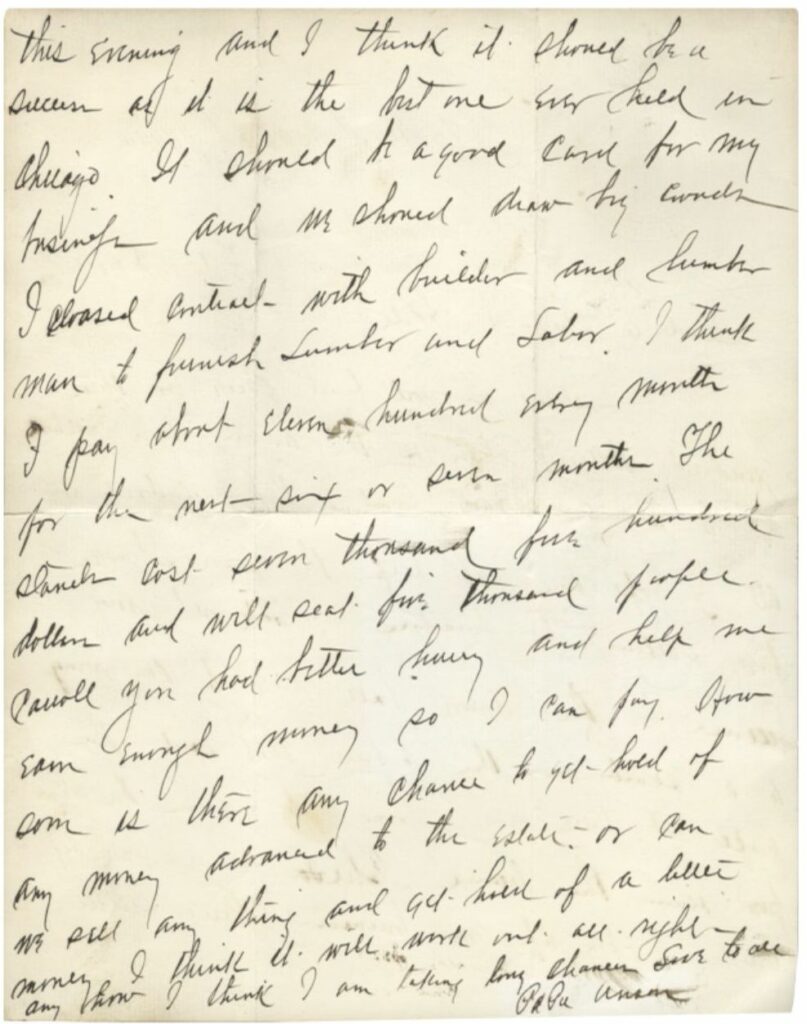 this Evening and I think it should be a
success as it is the best one ever held in
Chicago. It should be a good card for my
business and we should draw big crowds
I cloased contract with builder and lumber
man to furnish Lumber and Labor. I think
I pay about eleven hundred every month
for the next six or seven months. The
stands cost seven thousand five hundred
dollars and will seat five thousand people.
Carroll you had better hurry and help me
earn enough money so I can pay. How
soon is there any chance to get hold of
any money advanced to the estate, or can
we sell any thing and get hold of a little
money. I think it will work out all right
any how I think I am taking long chances Love to all
PaPa Anson